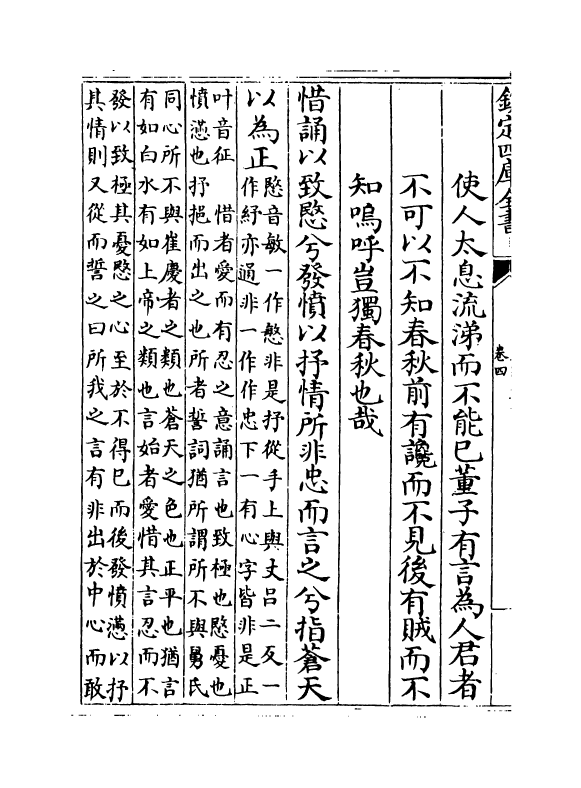 欽定四庫全書
卷四
使人太息流涕而不能已董子有言為人君者
不可以不知春秋前有讒而不見後有賊而不
知嗚呼豈獨春秋也哉
惜誦以致愍兮發憤以抒情所非忠而言之兮指蒼天
以為正
愍音敏一作慜非是抒從手上與丈吕二反一
作紓亦通非一作作忠下一有心字皆非是正
叶音征 惜者愛而有忍之意誦言也致極也愍憂也
憤懣也抒挹而出之也所者誓詞猶所謂所不與舅氏
同心所不與崔慶者之類也蒼天之色也正平也猶言
有如白水有如上帝之類也言始者愛惜其言忍而不
發以致極其憂愍之心至於不得已而後發憤懣以抒
其情則又從而誓之曰所我之言有非出於中心而敢